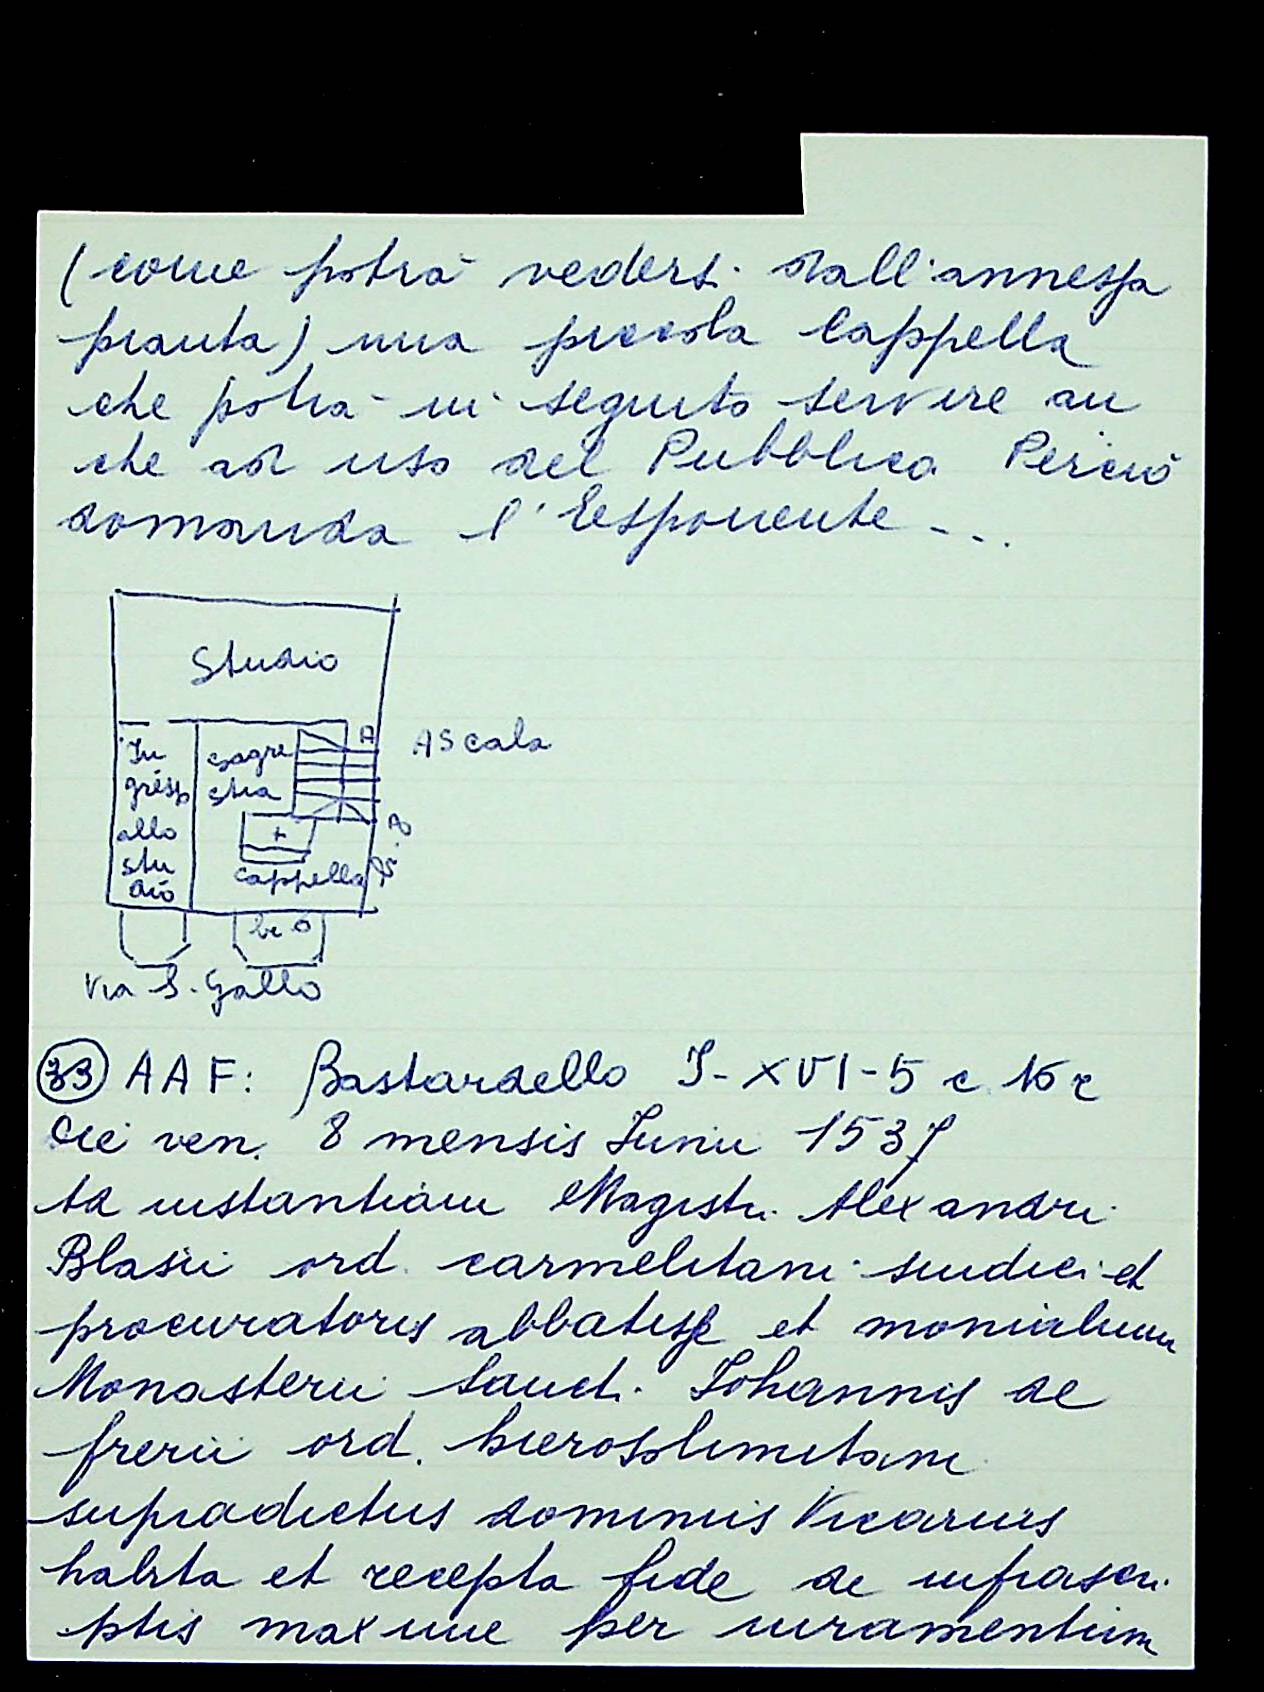 (come potrà vedersi dall'annessa
pianta) una piccola Cappella
che potrà in seguito servire an
che ad uso del Pubblico. Perciò
domanda l'Esponente - ...
Studio
A
A Scala
In
gresso
allo
stu
dio
sagre
stia
+
Cappella
Via S. Gallo
33 AAF: Bastardello I-XVI-5 c 16 r
die ven. 8 mensis Junii 1537
Ad instantiam Magistri Alexandri
Blasii ord. carmelitani sindici et
procuratoris abbatisse et monialium
Monasterii Sancti Johannis de
frerii ord. hierosolimitani
supradictus dominus Vicarius
habita et recepta fide de infrascri
ptis maxime per iuramentum